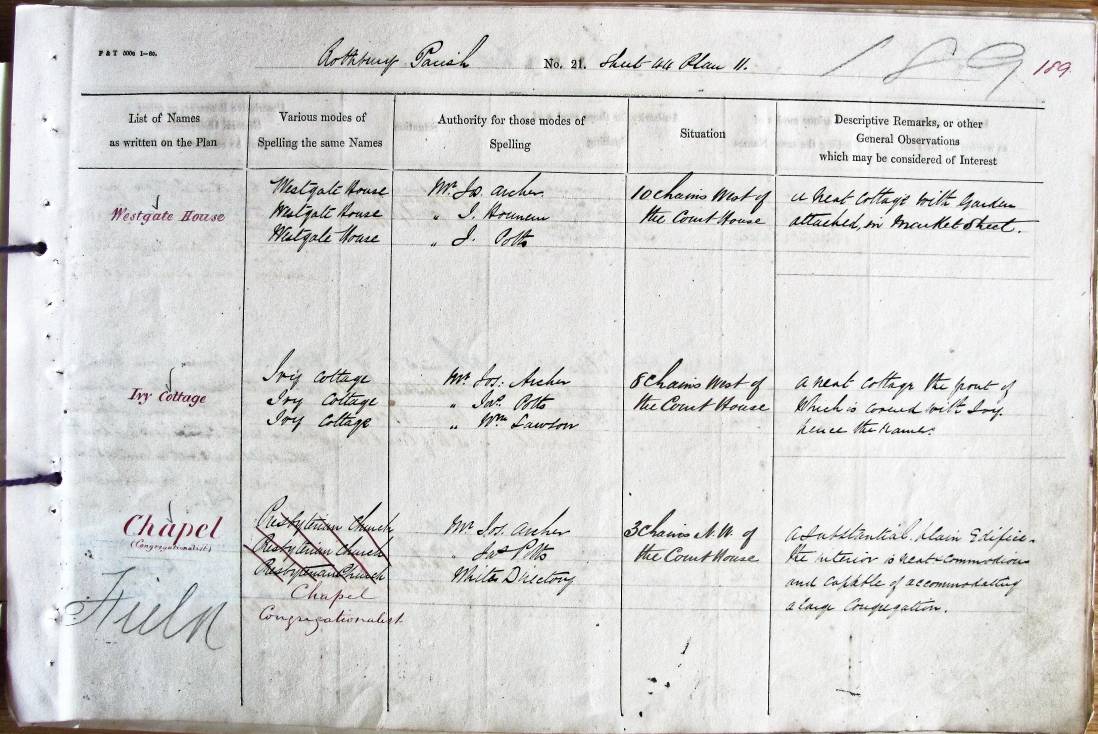 F & T 500s 1—60.
Rothbury Parish No. 21. Sheet 44 Plan 11.
189
189
List of Names
as written on the Plan
Various modes of
Spelling the same Names
Authority for those modes of
Spelling
Situation
Descriptive Remarks, or other
General Observations
which may be considered of Interest
Westgate House
Westgate House
Westgate House
Westgate House
Mr. Jos. Archer.
" J.
" J. Potts
10 Chains West of
the Court House
a neat Cottage with Garden
attached, in Market Street.
Ivy Cottage
Ivy Cottage
Ivy Cottage
Ivy Cottage
Mr. Jos. Archer
" Jas. Potts
" Wm. Lawson
8 Chains West of
the Court House
a neat cottage the front of
Which is covered with Ivy.
hence the name.
Chapel
(Congregationalist)
Field
Presbyterian Church
Presbyterian Church
Presbyterian Church
Chapel
Congregationalist
Mr. Jos. Archer
" Jas. Potts
Whites Directory
3 Chains N.W. of
the Court House
a Substantial, plain Edifice.
the interior is neat commodious
and capable of accommodating
a large Congregation.